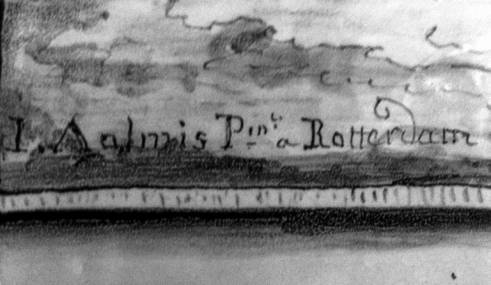 I. Aalmis Pinˣᵗ a Rotterdam